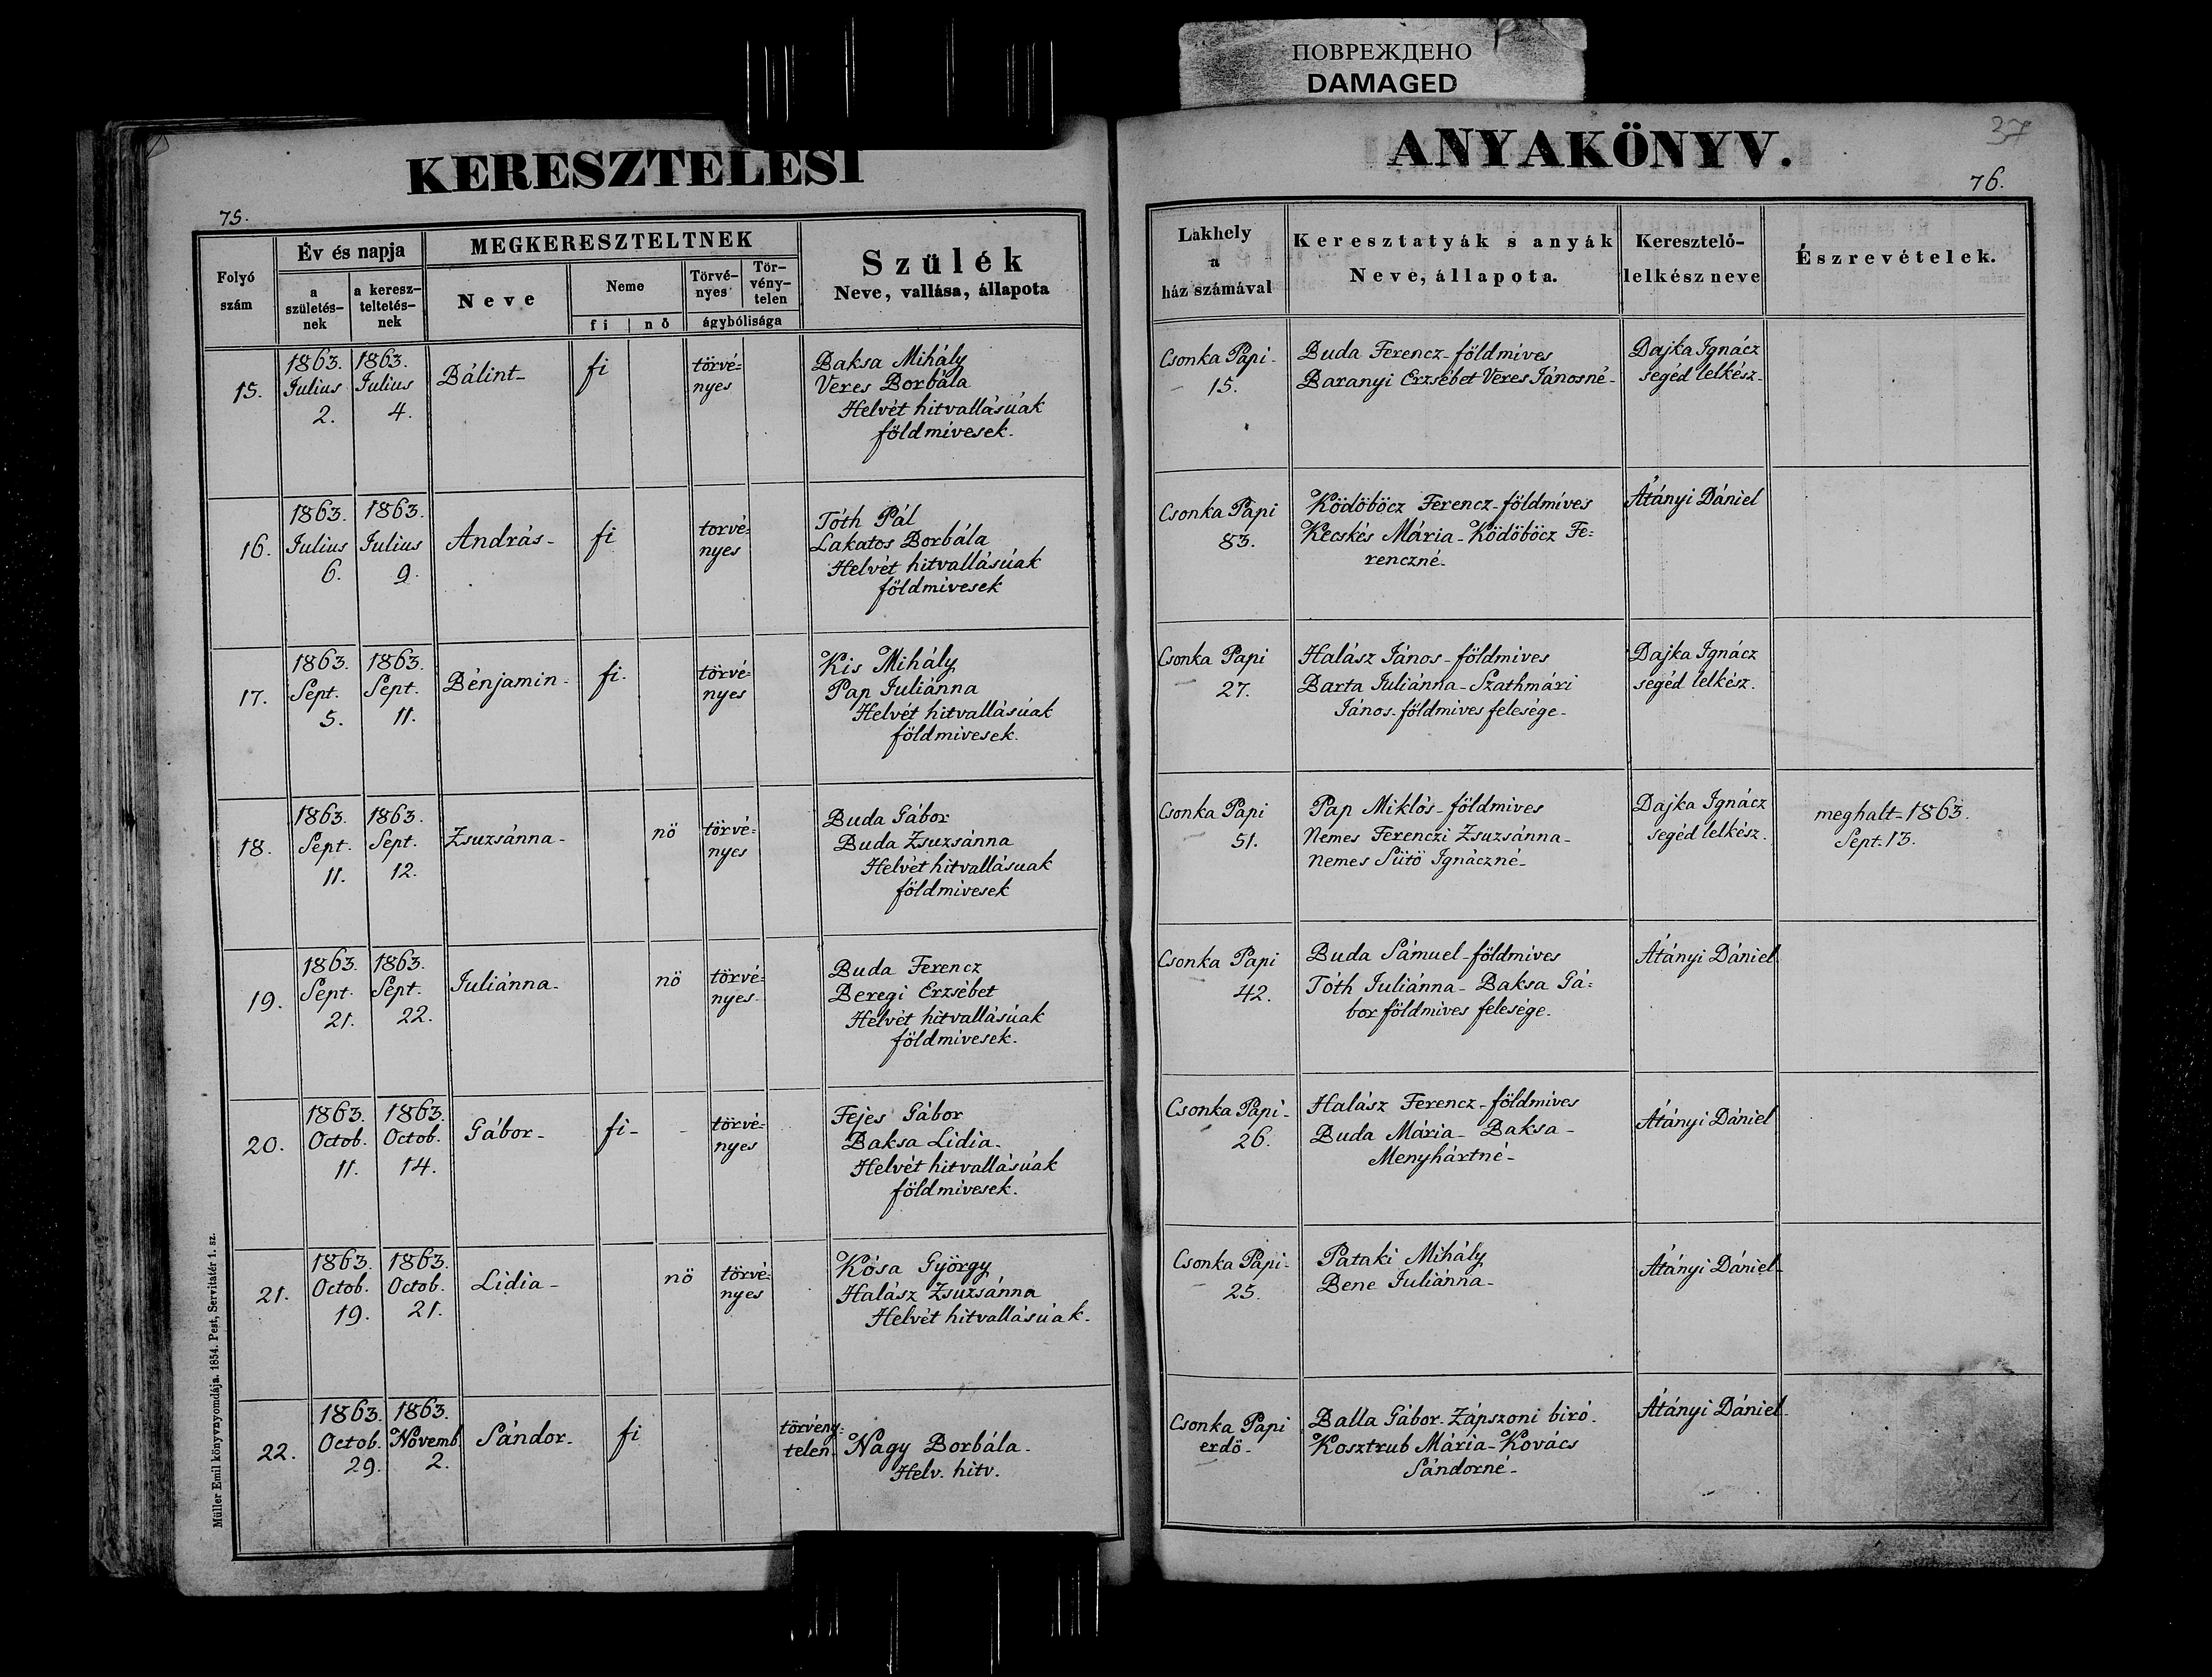 ПОВРЕЖДЕНО
DAMAGED
KERESZTELESI
ANYAKÖNYV.
37
75.
76.
Folyó szám
Év és napja
a születés-nek
a keresz-teltetés-nek
MEGKERESZTELTNEK
Neve
Neme
fi | nő
Törvé-nyes
Tör-vény-telen
ágybólisága
Szülék
Neve, vallása, állapota
Lakhely
a
ház számával
Keresztatyák s anyák
Neve, állapota.
Keresztelő-
lelkész neve
Észrevételek.
15.
1863. Julius 2.
1863. Julius 4.
Bálint-
fi
törvé=
nyes
Baksa Mihály
Veres Borbála
Helvét hitvallásúak
földmívesek.
Csonka Papi-
15.
Buda Ferencz-földmíves
Baranyi Erzsébet Veres Jánosné-
Dajka Ignácz
segéd lelkész-
16.
1863. Julius 6.
1863. Julius 9.
András-
fi
torvé=
nyes
Tóth Pál
Lakatos Borbála
Helvét hitvallásúak
földmivesek
Csonka Papi
83.
Ködöböcz Ferencz-földmíves
Kecskés Mária-Ködöböcz Fe=
renczné-
Átányi Dániel
17.
1863. Sept. 5.
1863. Sept. 11.
Bénjamin-
fi.
törvé=
nyes
Kis Mihály
Pap Juliánna
Helvét hitvallásúak
földmivesek.
Csonka Papi
27.
Halász János-földmives
Barta Juliánna-Szathmári
János-földmives felesége-
Dajka Ignácz
segéd lelkész.
18.
1863. Sept. 11.
1863. Sept. 12.
Zsuzsánna-
nö
törvé=
nyes
Buda Gábor
Buda Zsuzsánna
Helvét hitvallásuak
földmivesek
Csonka Papi
51.
Pap Miklós-földmives
Nemes Ferenczi Zsuzsánna-
Nemes Sütö Ignáczné-
Dajka Ignácz
segéd lelkész.
meghalt-1863.
Sept. 13.
19.
1863. Sept. 21.
1863. Sept. 22.
Juliánna-
nö
törvé=
nyes-
Buda Ferencz
Beregi Erzsébet
Helvét hitvallásúak
földmivesek.
Csonka Papi
42.
Buda Sámuel-földmíves
Tóth Juliánna-Baksa Gá=
bor földmives felesége.
Átányi Dániel
20.
1863. Octob. 11.
1863. Octob. 14.
Gábor-
fi-
törvé=
nyes
Fejes Gábor
Baksa Lidia-
Helvét hitvallásúak
földmivesek.
Csonka Papi-
26.
Halász Ferencz-földmives
Buda Mária-Baksa-
Menyhártné-
Átányi Dániel
21.
1863. Octob. 19.
1863. Octob. 21.
Lidia-
nö
törvé=
nyes
Kósa György
Halász Zsuzsánna
Helvét hitvallásúak.
Csonka Papi-
25.
Pataki Mihály
Bene Juliánna-
Átányi Dániel-
22.
1863. Octob. 29.
1863. Novemb. 2.
Sándor-
fi
törvény=
telen-
Nagy Borbála-
Helv. hitv.
Csonka Papi
erdö-
Balla Gábor-Zápszoni biró.
Kosztrub Mária-Kovács
Sándorné-
Átányi Dániel-
Müller Emil könyvnyomdája. 1854. Pest, Servitatér 1. sz.